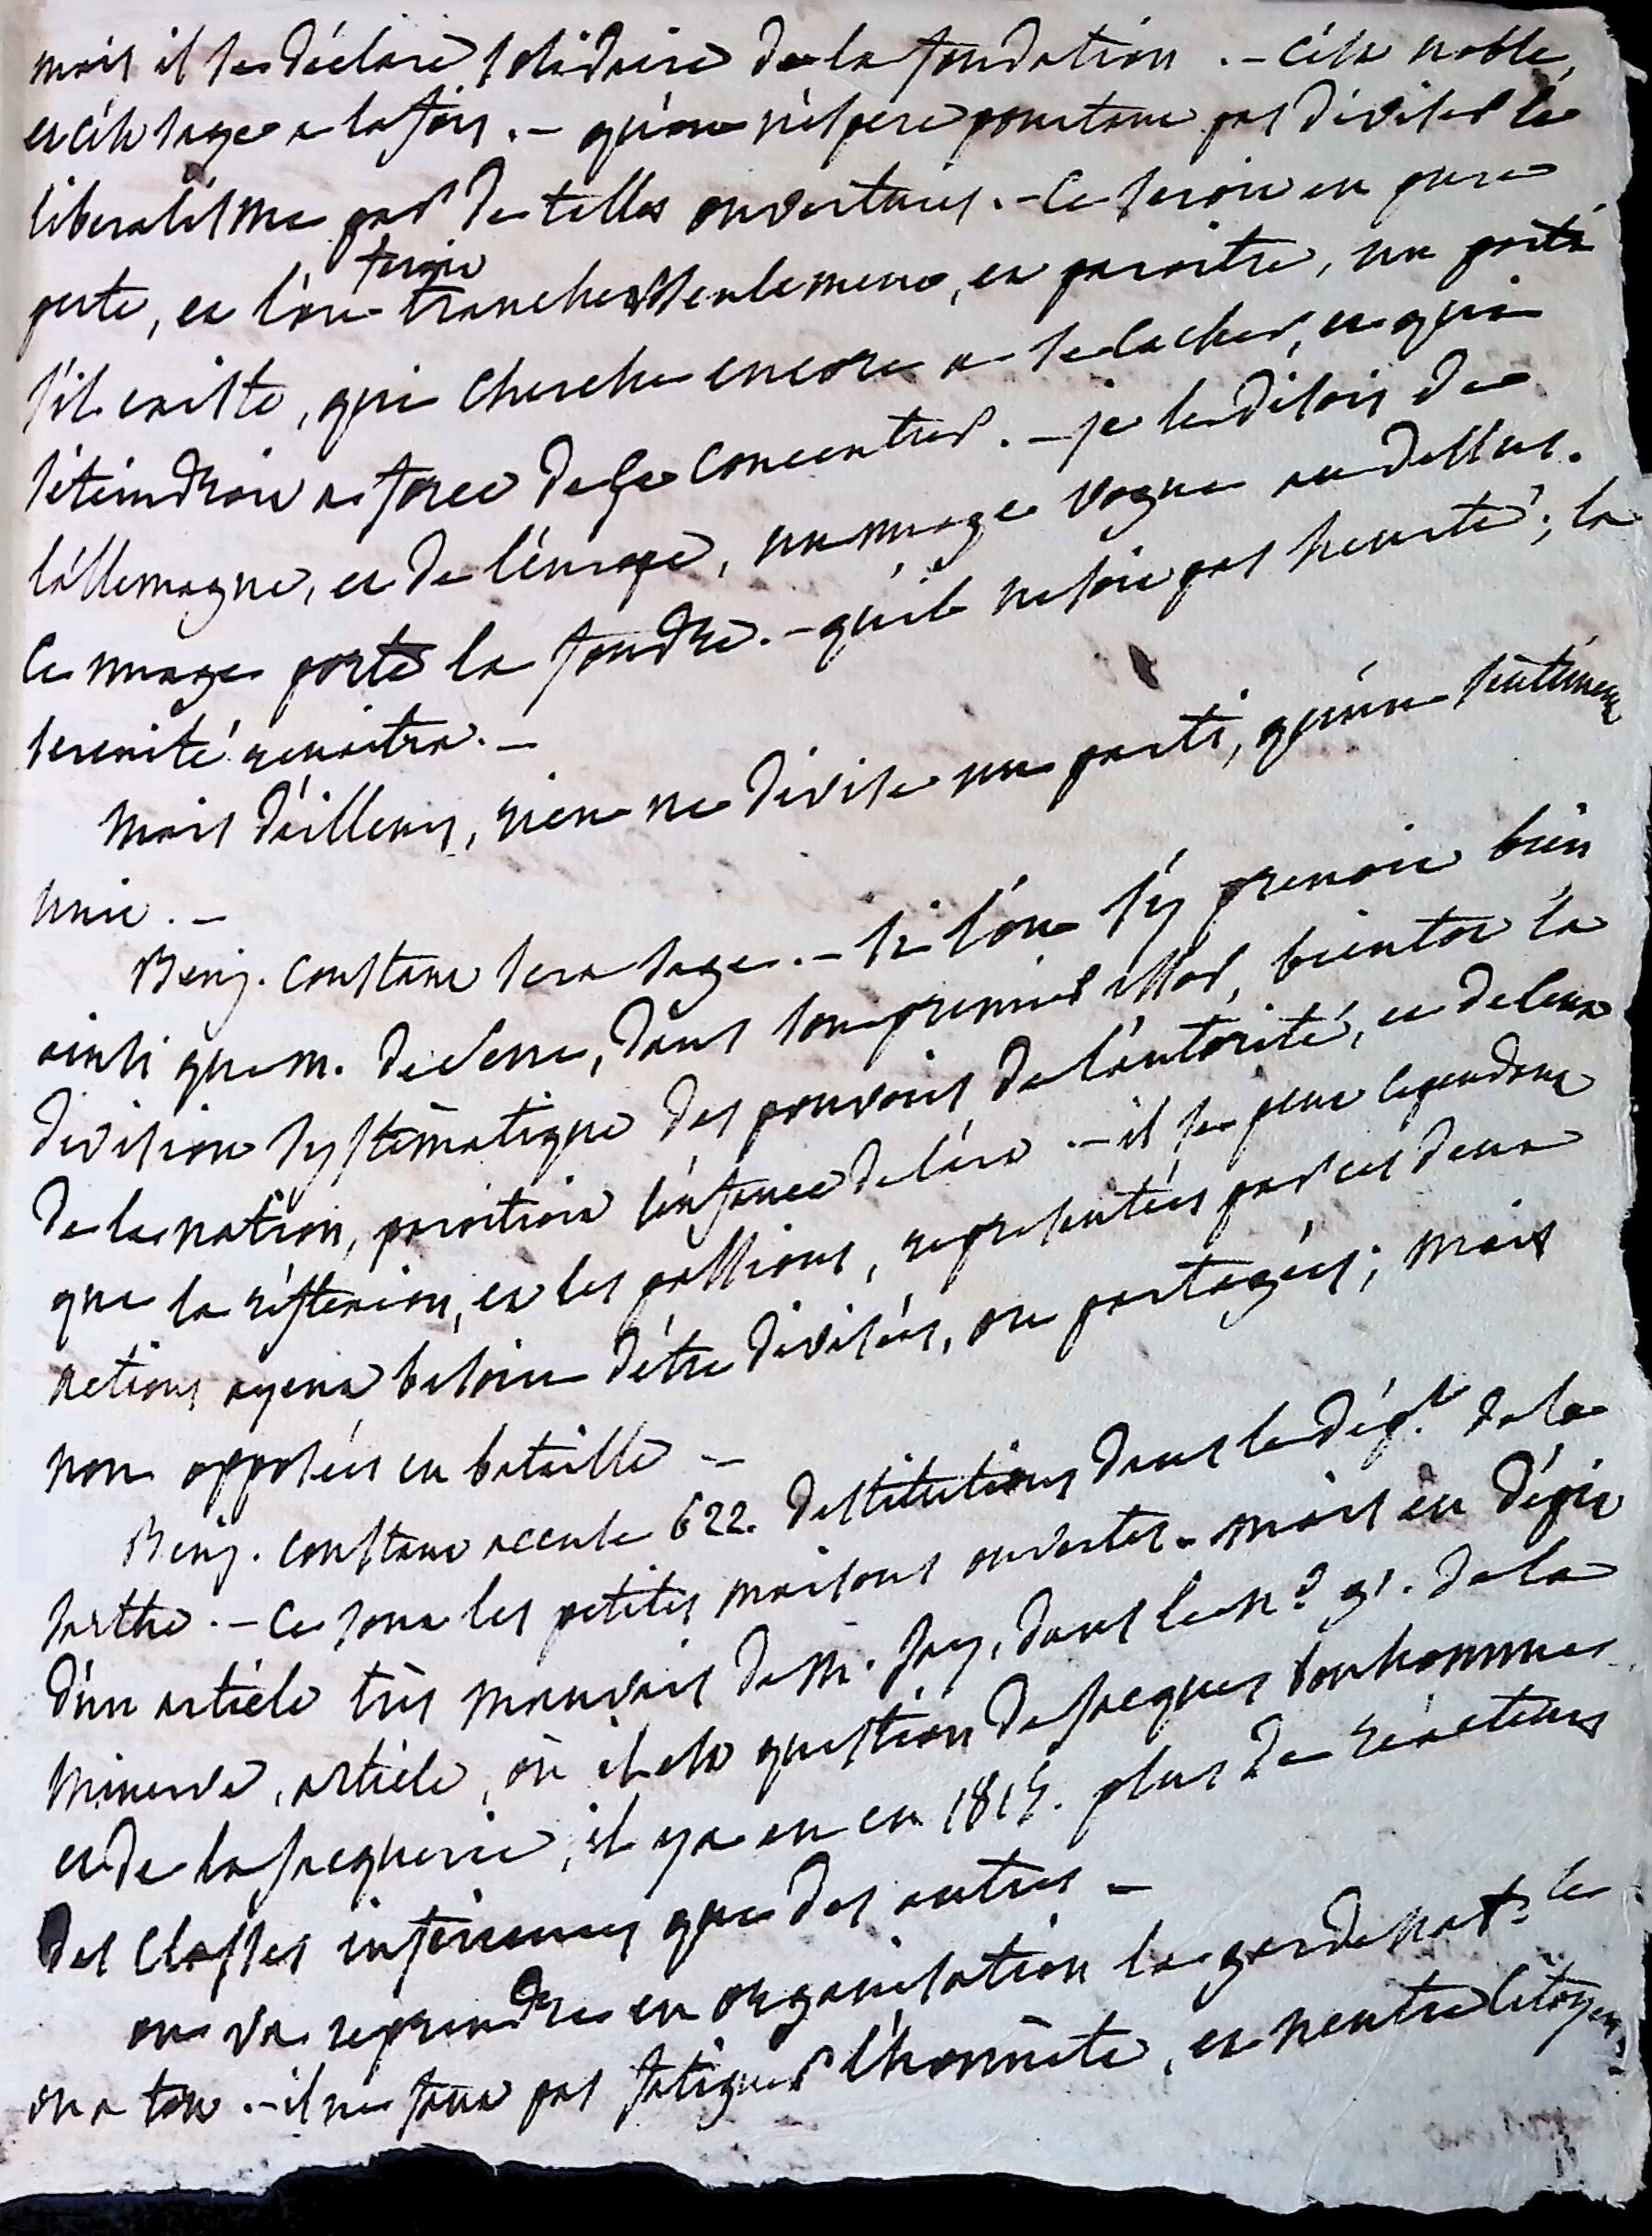 mais il se déclare solidaire de la fondation. - c'est noble,
et c'est sage a la fois. - qu'on n'espere pourtant pas diviser le
liberalisme par de telles ouvertures. - Ce seroit en pure
perte, et l'on feroit trancher seulement, et paroitre, un parti
s'il existe, qui cherche encore a se cacher, et qui
s'éteindroit a force de se concentrer. - je le disois de
l'allemagne, et de l'europe, un nuage vogue au dessus.
Ce nuage porte la foudre. - qu'il ne soit pas heurté; la
serenité renaitra. -
Mais d'ailleurs, rien ne divise un parti, qu'un sentiment
unit. -
Benj. Constant sera sage. - si l'on s'y prenoit bien
ainsi que m. de Serre, dans son premier essor, bientot la
division systématique des pouvoirs de l'autorité, et de ceux
de la nation, paroitroit l'enfance de l'art. - il se peut cependant
que la réflexion, et les passions, representées par ces deux
actions ayent besoin d'être divisées, ou partagées; mais
non opposées en bataille -
Benj. Constant accuse 622. destitutions dans le dép.t de la
sarthe. - Ce sont les petites maisons ouvertes. mais en dépit
d'un article très mauvais de M. Jay, dans le n.o 91. de la
Minerve, article, où il est question de jacques bonhomme
et de la jacquerie, il y a eu en 1815. plus de réacteurs
des classes inferieures que des autres -
on va reprendre en organisation la garde nat.le
on a tort. - il ne faut pas fatiguer l'honnête, et neutre citoyen